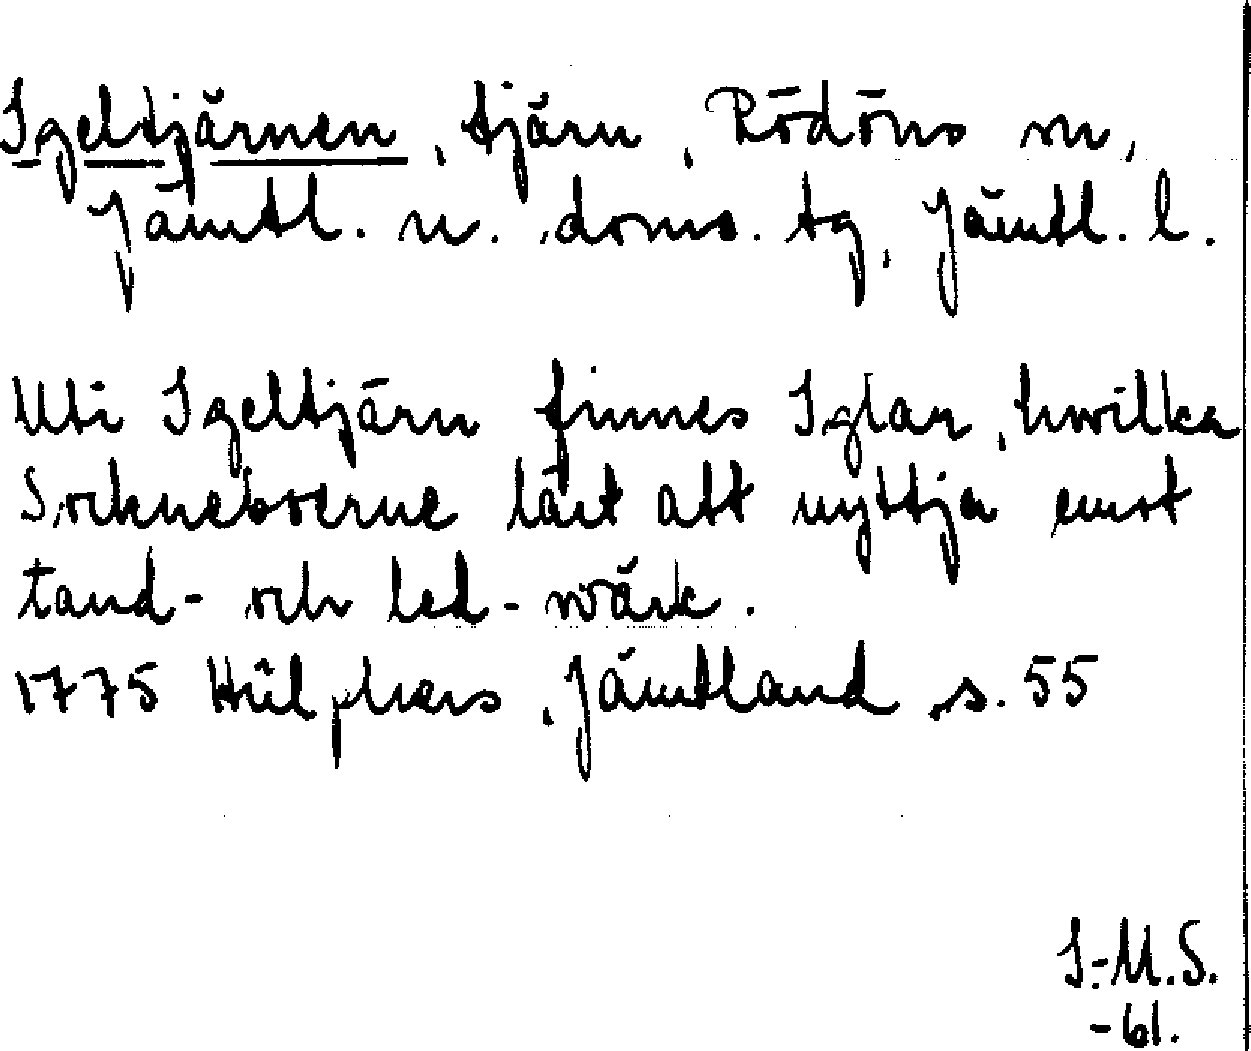 Igeltjärnen, tjärn, Rödöns sn,
Jämtl. n. doms. tg, Jämtl. l.
Uti Igeltjärn finnes Iglar, hwilka
Sockneboerne lärt att nyttja emot
tand- och led-wärk.
1775 Hülphers, Jämtland, s. 55
I.-M.S.
-61.